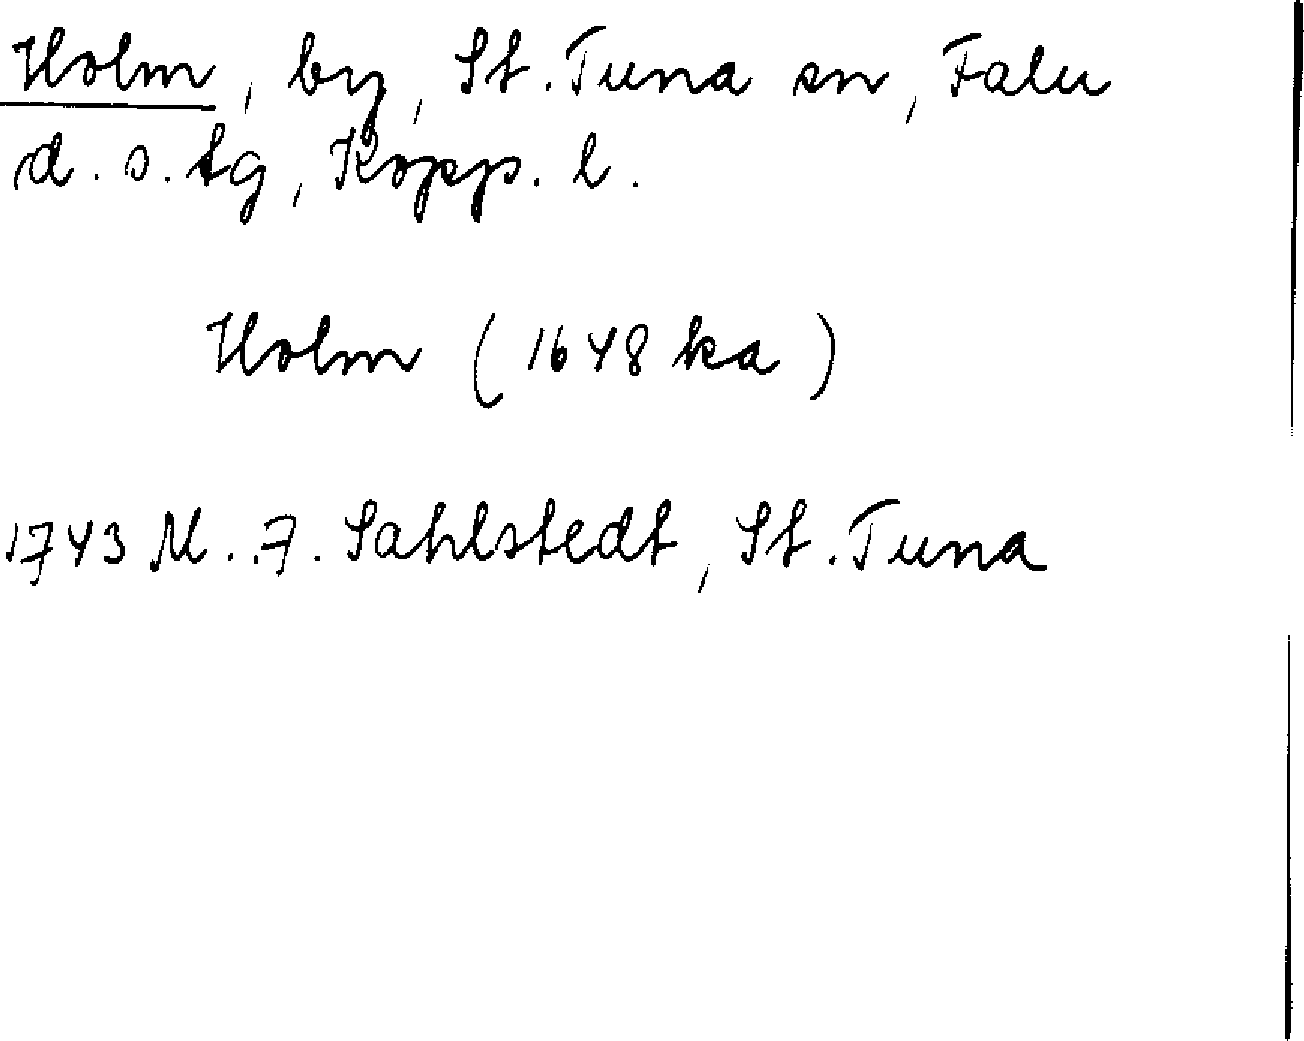 Holm, by, St. Tuna sn, Falu
d. s. tg, Kopp. l.
Holm (1648 ka)
1743 M. . 7. Sahlstedt, St. Tuna